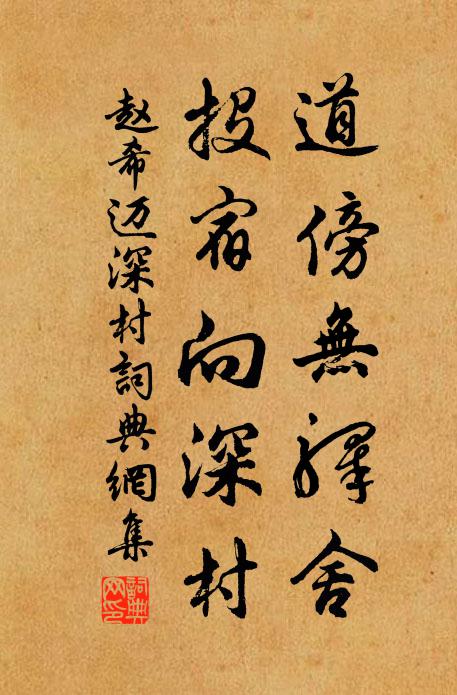 道傍無驛舍
投宿向深村
赵希迈深村詞典網集
詞典網印